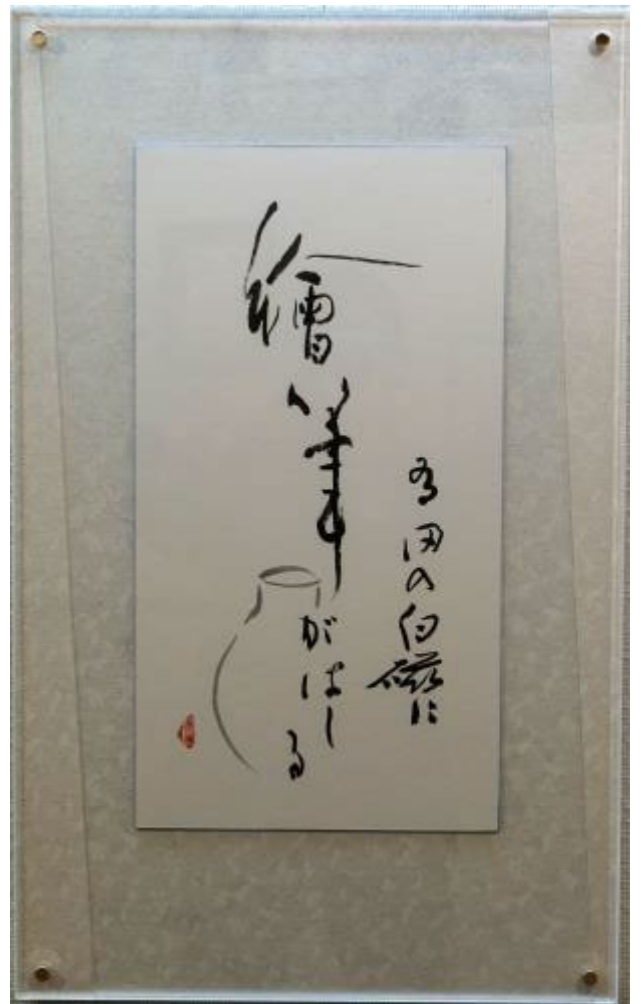 有田の白磁に
繪筆がはしる